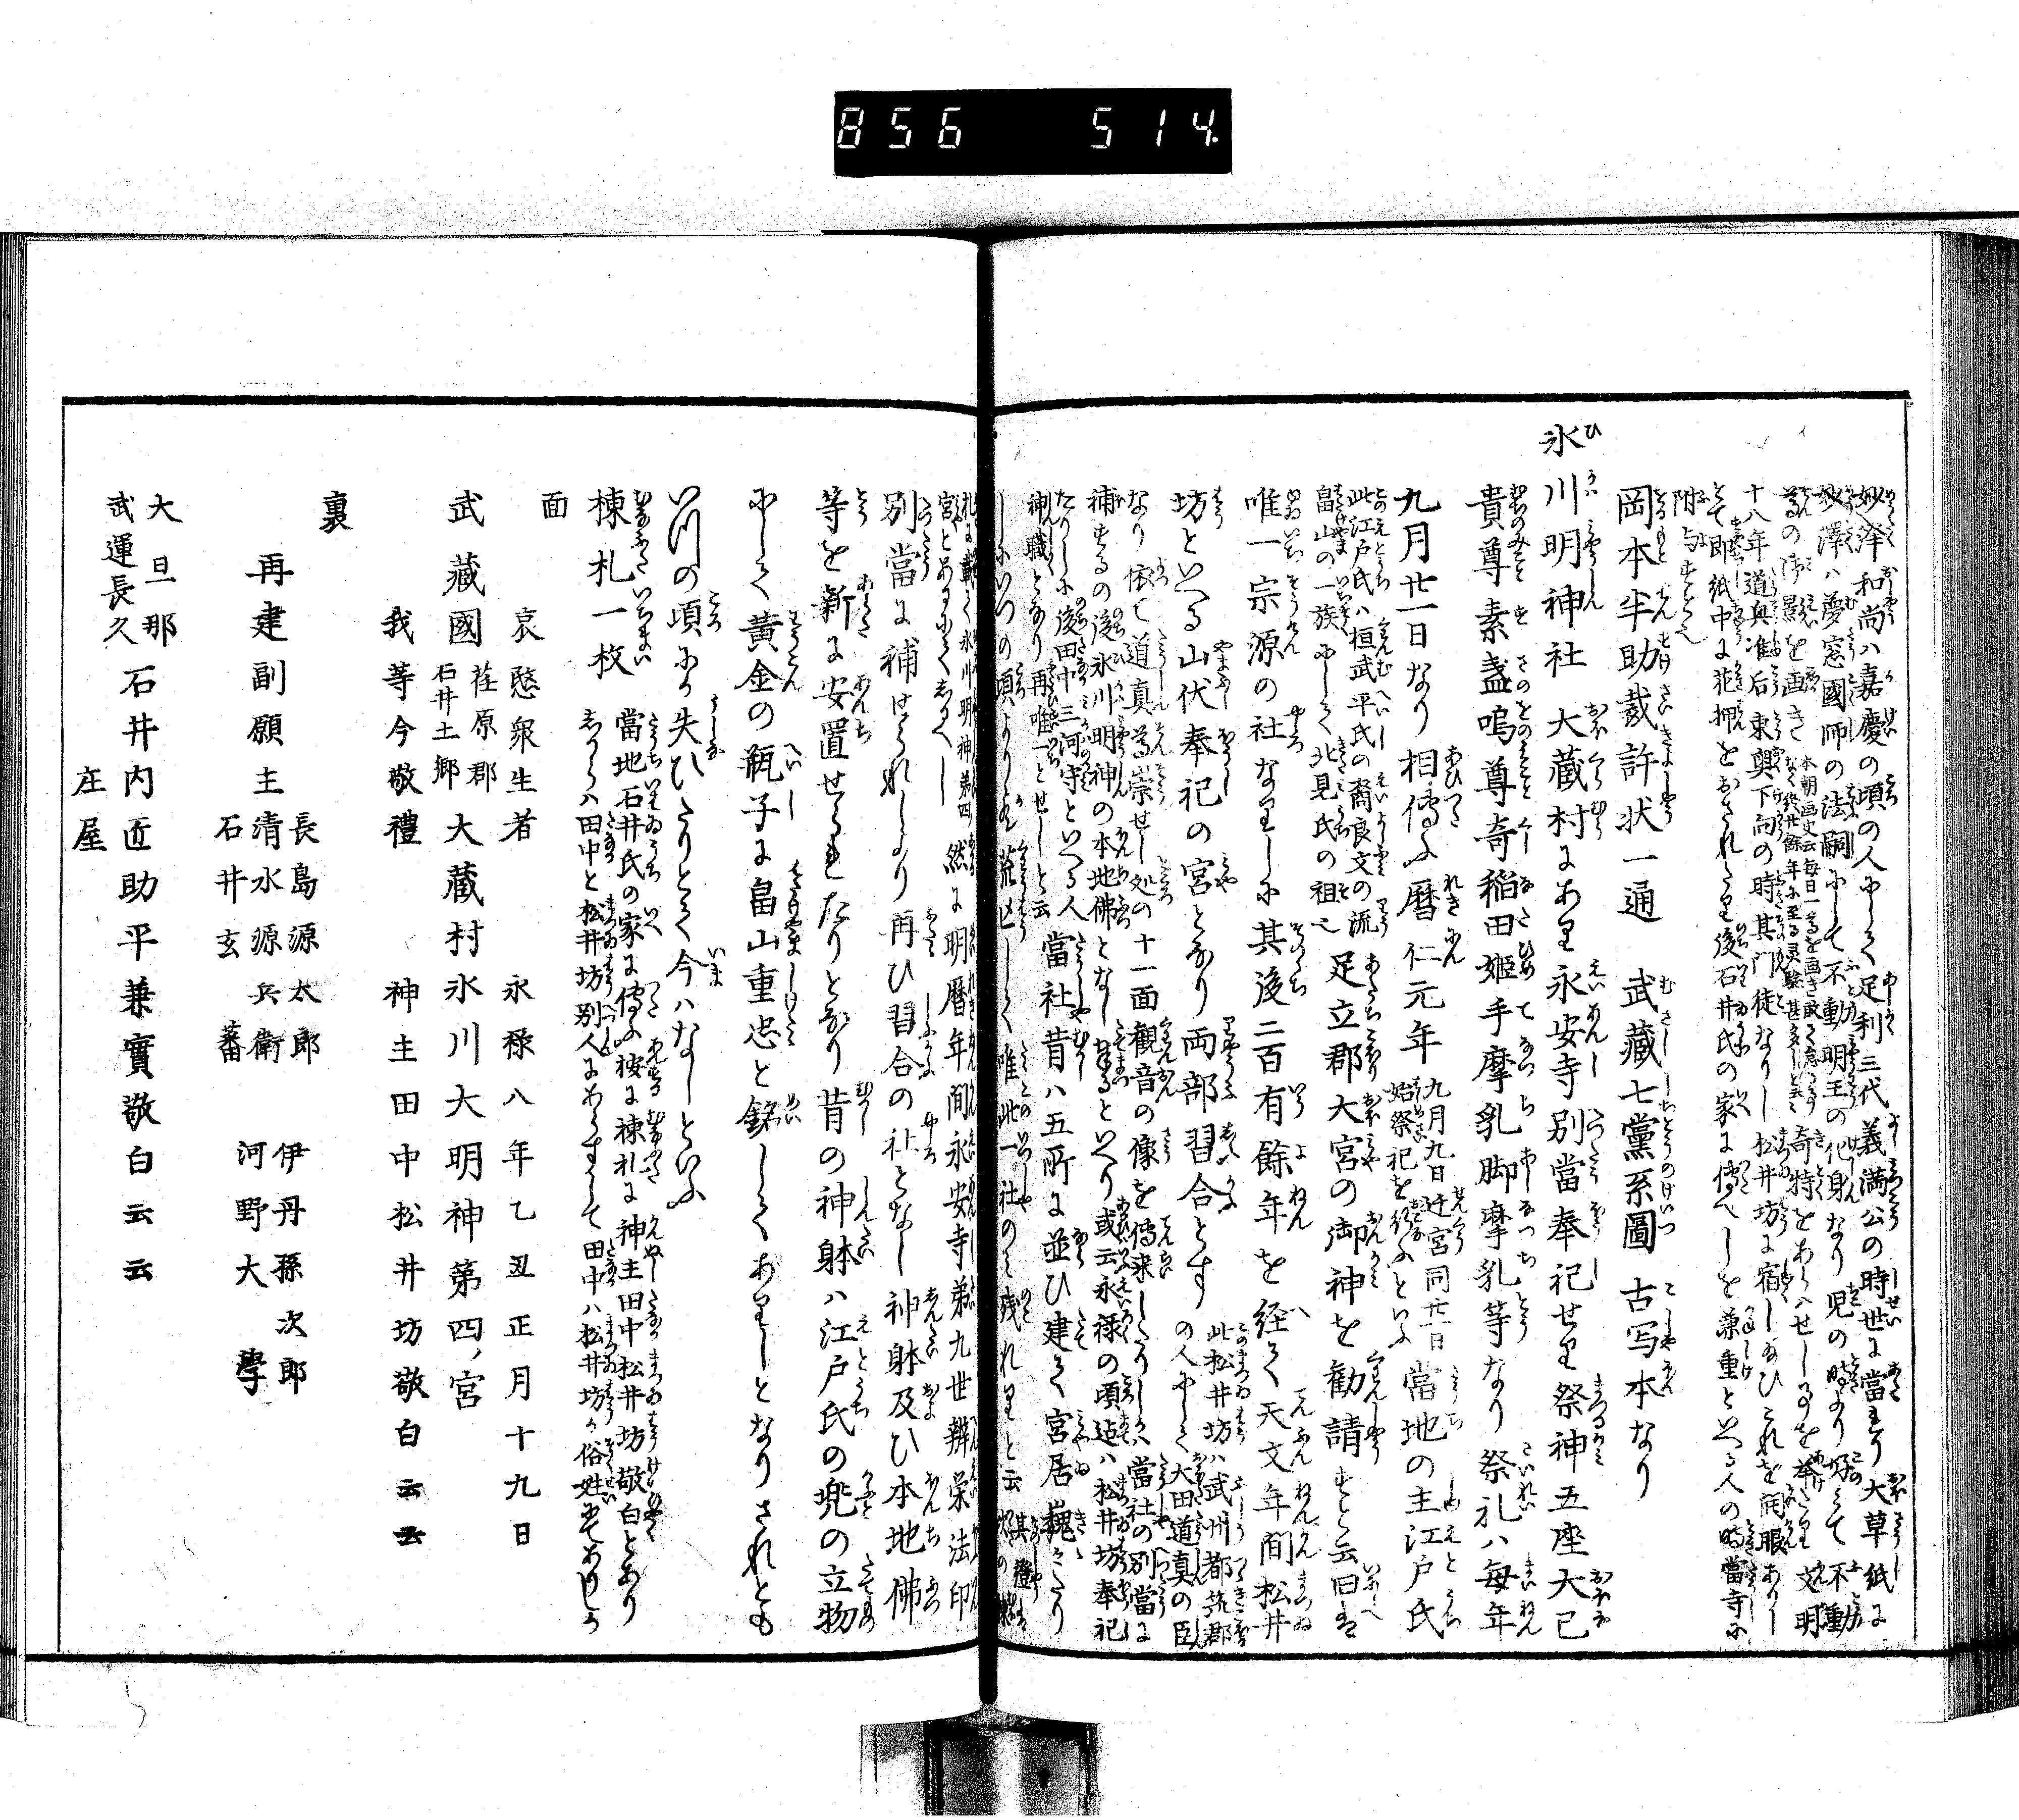 856 514
妙澤和尚ハ嘉慶の頃の人にして足利三代義満公の時世に當れり大草紙に
妙澤ハ夢窓國師の法嗣にして不動明王の化身なり児の時より好みて不動
尊の御影を画き
本朝画史云毎日一紙を画き敢て怠らす
なく終廿餘年に至る灵驗甚多しと云云
奇特をあらハせし事を挙たり文明
十八年道興准后東輿下向の時其門徒なりし松井坊に宿し給ひこれを閲服ありし
とて即紙中に花押をおされたり後石井氏の家に傳へしを兼重といへる人の時當寺に
附与せしと云
岡本半助裁許状一通 武藏七黨系圖 古写本なり
氷川明神社 大蔵村にあり永安寺別當奉祀せり祭神五座大己
貴尊素盞嗚尊奇稲田姫手摩乳脚摩乳等なり祭礼ハ毎年
九月廿一日なり相傳ふ暦仁元年
九月九日迁宮同廿一日
始祭祀を行ふといふ
當地の主江戸氏
此江戸氏ハ桓武平氏の裔良文の流
畠山の一族にして北見氏の祖也
足立郡大宮の御神を勧請せしと云旧は
唯一宗源の社なりしに其後二百有餘年を経て天文年間松井
坊といへる山伏奉祀の宮となり両部習合とす
此松井坊ハ武州都筑郡
の人にして大田道真の臣
なり依て道真尊崇せし処の十一面観音の像を傳来したりしハ當社の別當に
補せるの後氷川明神の本地佛となし奉るといへり或云永禄の頃迠ハ松井坊奉祀
たりしに後田中三河守といへる人
神職となり再唯一とせしと云
當社昔ハ五所に並ひ建て宮居巍々たり
しにいつの頃よりか荒亡して唯此一社のミ残れりと云
其證
札に載て氷川明神第四
宮とあるにてしるへし
然に明暦年間永安寺第九世辨栄法印
別當に補せられしより再ひ習合の社となし神躰及ひ本地佛
等を新に安置せられたりとなり昔の神躰ハ江戸氏の兜の立物
にして黄金の瓶子に畠山重忠と銘してありしとなりされとも
いつの頃にか失ひたりとて今ハなしといふ
棟札一枚
當地石井氏の家に傳ふ按に棟札に神主田中松井坊敬白とあり
しからハ田中と松井坊別人にあらすして田中ハ松井坊か俗姓にてありけるか
面
哀愍衆生者 永祿八年乙丑正月十九日
武藏國
荏原郡
石井土郷
大蔵村氷川大明神第四ノ宮
我等今敬禮 神主田中松井坊敬白云云
裏
再建副願主
長島源太郎
清水源兵衛
石井玄蕃
伊丹孫次郎
河野大學
大旦那
武運長久
石井内匠助平兼實敬白云云
庄屋